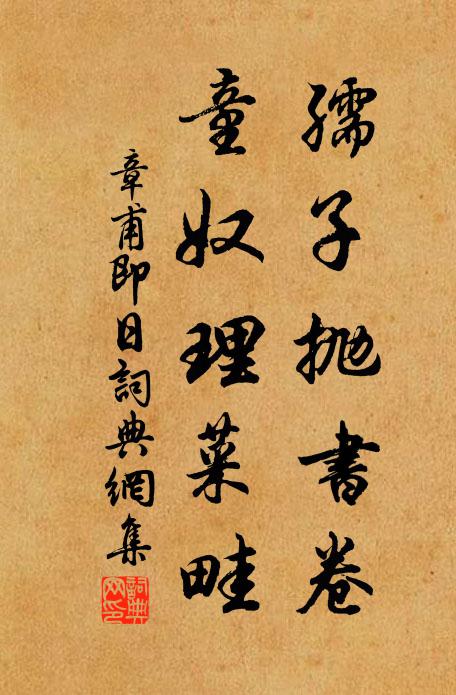 孺子抛書卷
童奴理菜畦
章甫即日詞典網集
詞典
网印